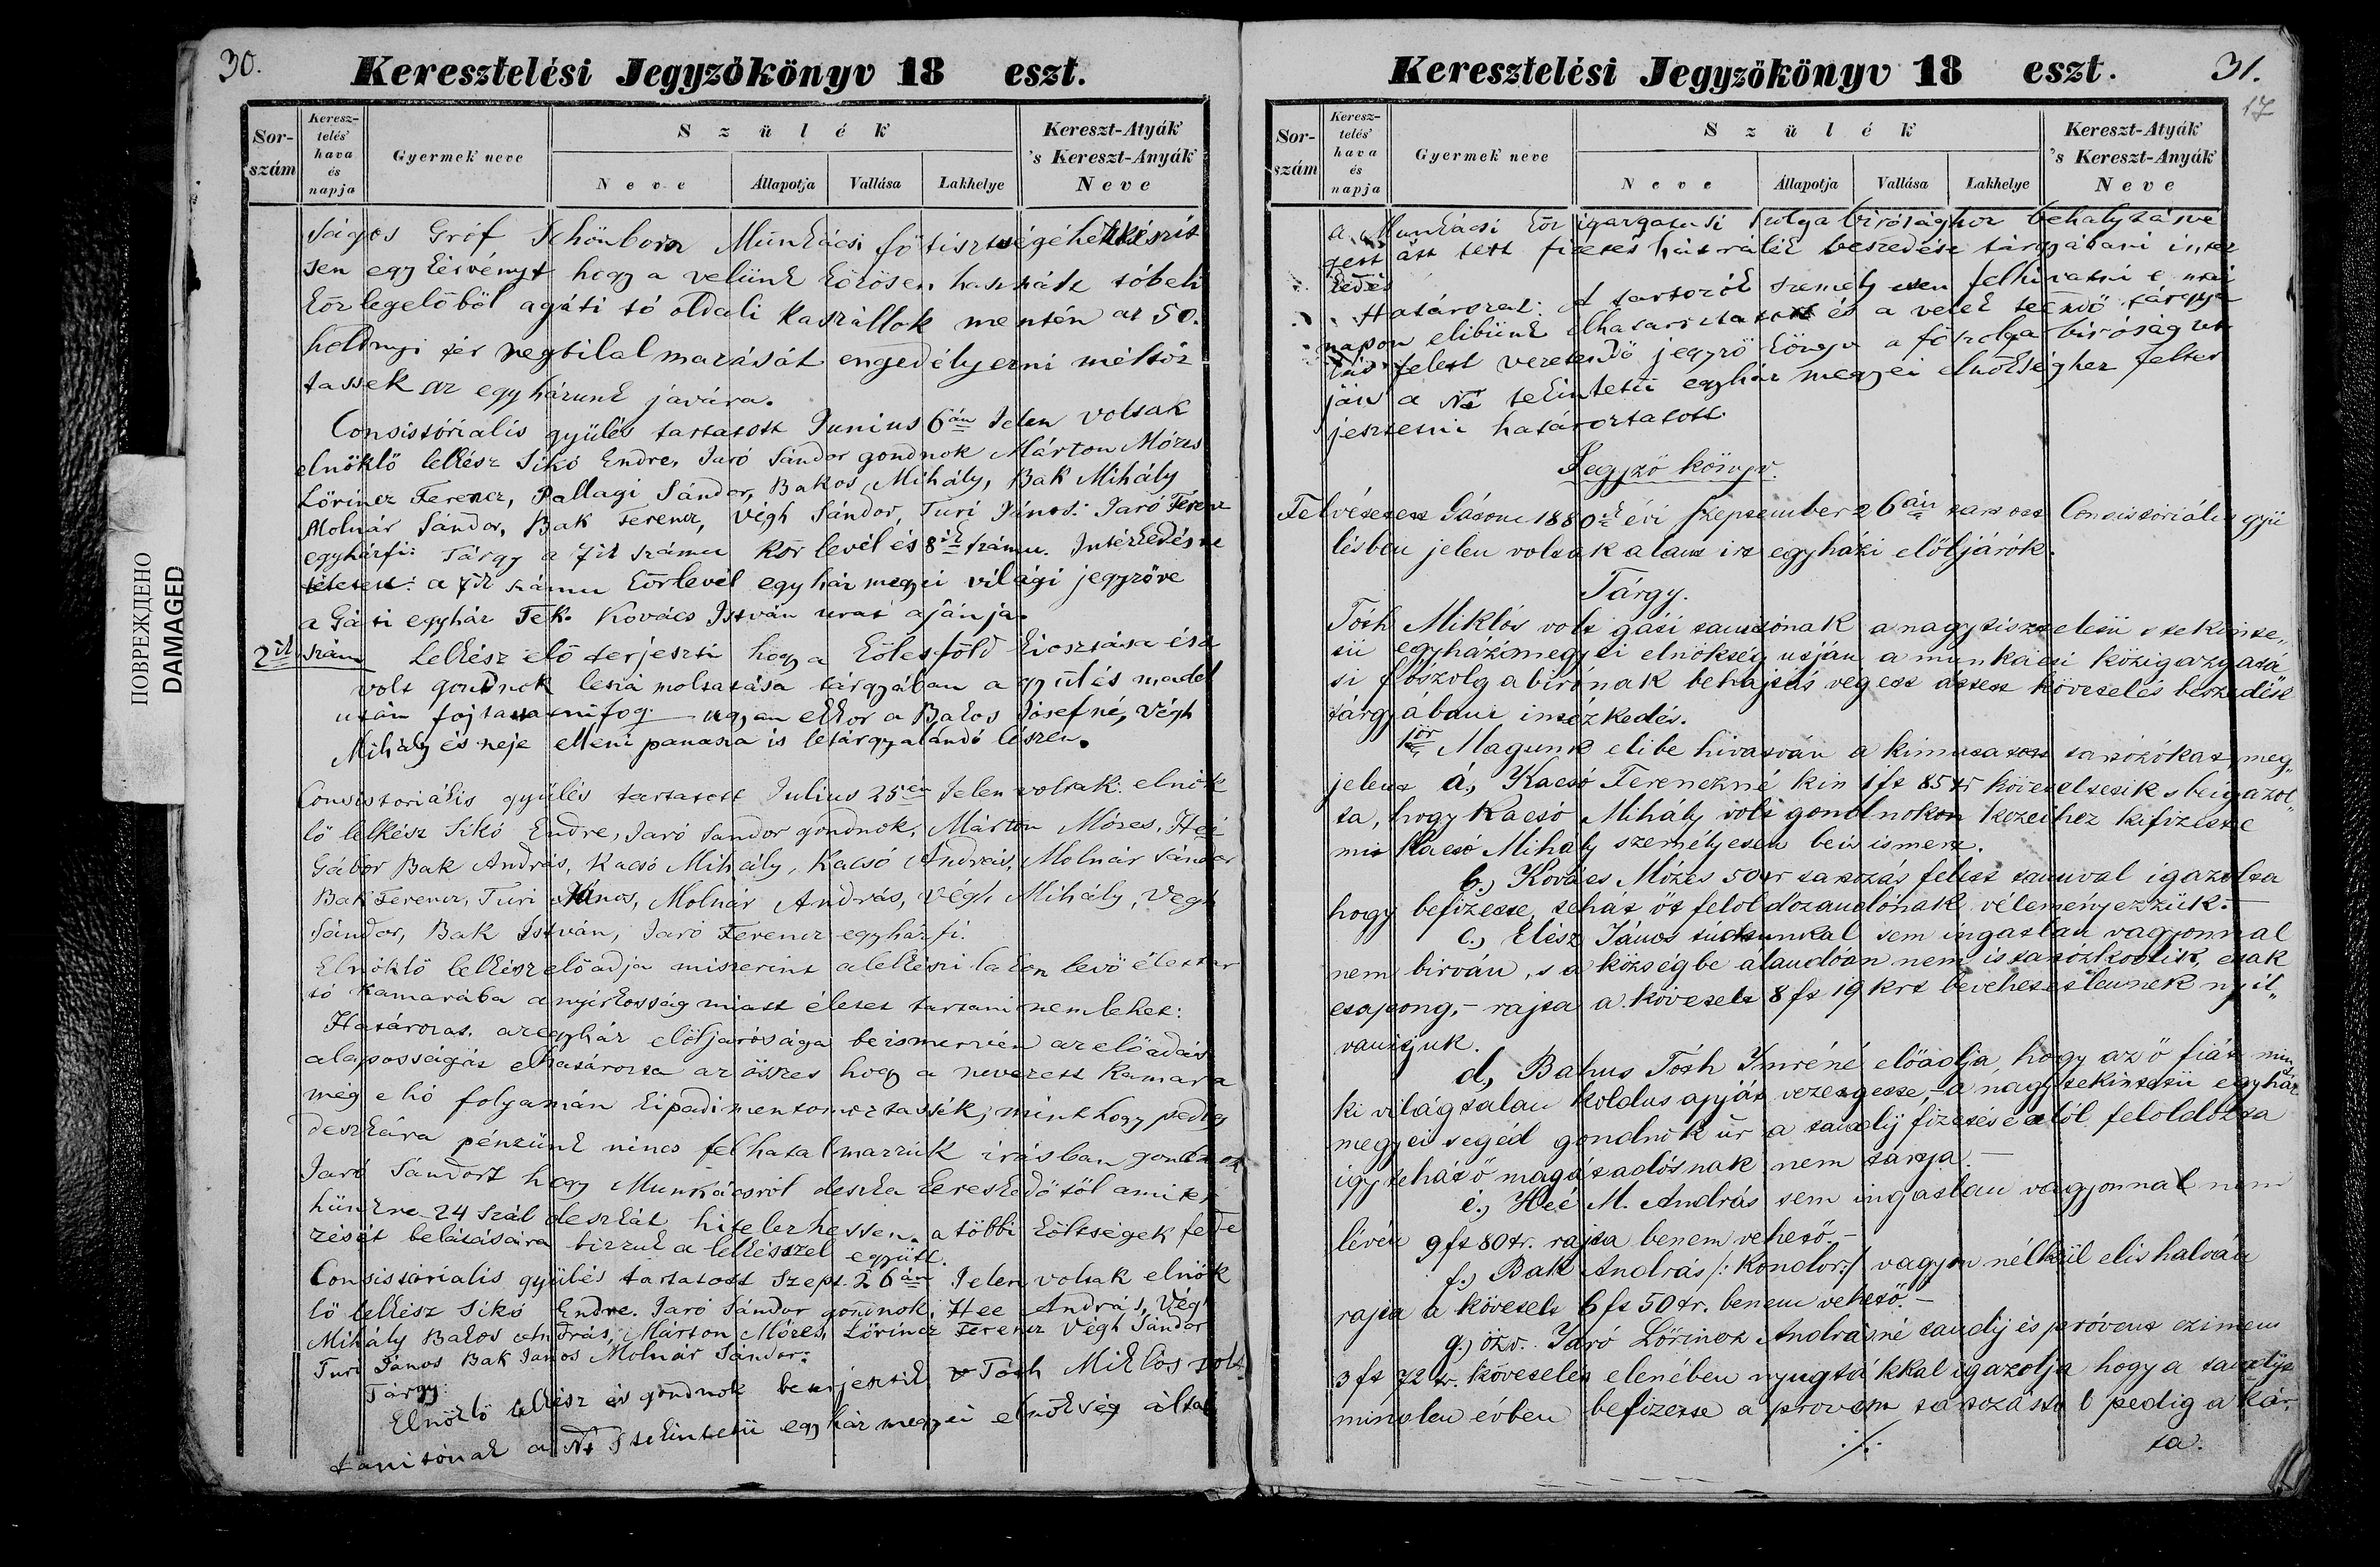 30.
Keresztelési Jegyzőkönyv 18 eszt.
Sor-szám
Keresz-telés' hava és napja
Gyermek neve
Szülék
Neve
Állapotja
Vallása
Lakhelye
Kereszt-Atyák 's Kereszt-Anyák Neve
ságos Gróf Schönborn Munkácsi főtisztségéhez készít
sen egy kérvényt hogy a velünk közösen használt tóbeli
közlegelőböl agáti tó oldali kaszállok mentén az 50.
holdnyi tér megtilalmazását engedélyezni méltóz
tassek az egyházunk jávára.
Consistórialis gyülés tartatott Junius 6án Jelen voltak
elnöklő lelkész Sikó Endre, Jaró Sándor gondnok Márton Mózes
Lörincz Ferencz, Pallagi Sándor, Bakos Mihály, Bak Mihály
Molnár Sándor, Bak Ferencz, Végh Sándor, Turi János. Jaró Ferencz
egyházfi: Tárgy a 7ik számu kör levél és 8ik számu. Intézkedés
tétetett: a 7ik számu körlevél egyház megyei világi jegyzőve
a Gáti egyház Tek. Kovács István urat ajánja.
2ik szám Lelkész elő terjeszti hogy a Kölesföld kiosztása és a
volt gondnok leszámoltatása tárgyában a gyülés
után fojtattatni fog. ugyan ekkor a Bakos Jósefné, Végh
Mihály és neje elleni panasza is letárgyalándó lészen.
Consistoriális gyülés tartatott Julius 25én Jelen voltak. elnök
lő lelkész Sikó Endre, Jaró Sandor gondnok, Márton Mózes, Heé
Gábor Bak András, Kacsó Mihály, Kacsó András, Molnár Sándor
Bak Ferencz, Turi János, Molnár András, Végh Mihály, Végh
Sándor, Bak István, Jaró Ferencz egyházfi.
Elnöklő lelkész előadja miszerint a lelkészi lakon levő élettar
tó kamarába a nyirkosság miatt életet tartani nem lehet:
Határozat. az egyház előljárósága beismervén az előadás
alaposságát elhatározta az öszves hogy a nevezett kamara
még e hó folyamán kipadimentomoztassék; mint hogy pedig
deszkára pénzünk nincs felhatalmazzuk irásban gondnok
Jaró Sándort hogy Munkácsról deszka kereskedőtöl
hünkre 24 szál deszkát hitelezhessen. a többi költségek fede
zését belátására bizzuk a lelkésszel együtt.
Consistorialis gyülés tartatott Szept. 26án Jelen voltak elnök
lő lelkész Sikó Endre. Jaró Sándor gondnok. Hee András, Végh
Mihály Bakos András, Márton Mózes, Lőrincz Ferencz Végh Sándor
Turi János Bak János Molnár Sándor.
Tárgy:
Elnöklő lelkész és gondnok beterjesztik Tóth Miklós volt
tanitónak a Nt S tekintetü egyház megyei elnökség által
31.
17
Keresztelési Jegyzőkönyv 18 eszt.
Sor-szám
Keresz-telés' hava és napja
Gyermek neve
Szülék
Neve
Állapotja
Vallása
Lakhelye
Kereszt-Atyák 's Kereszt-Anyák Neve
a Munkácsi közigazgatási szolgabirósághoz behajtás vé
gett át tett fizetés hátralék beszedése tárgyábani intéz
kedés
Határozat: A tartozók személyesen felhivatni e mai
napon elibünk elhatároztatott és a velek teendő tárgya
lás felett vezetendő jegyző könyv a főszolgabiróság
ján a Nt tekintetü egyház megyei elnökséghez felter
jesztetni határoztatott.
Jegyző könyv.
Felvétetett Gáton 1880ik évi september 26án tartott Consistoriális gyü
lésben jelen voltak alant irt egyházi előljárók.
Tárgy.
Tóth Miklós volt gáti tanitónak a nagytiszteletü s tekinte„
tü egyházmegyei elnökség utján a munkácsi közigazgatá
si főszolgabirónak behajtás végett áttett követelés beszedése
tárgyábani intézkedés.
1ör Magunk elibe hivatván a kimutatott tartózókat, meg„
jelent á, Kacsó Ferenczné kin 1 ft 85 xr követeltetik s beigazol„
ta, hogy Kacsó Mihály volt gondnokon kezeihez kifizette
mit Kacsó Mihály személyesen be is ismert.
b.) Kovács Mózes 50 xr tartozás felett tanuval igazolta
hogy befizette, tehát őt feloldozandónak véleményezzük. —
c.) Elész János tudtunkal sem ingatlan vagyonnal
nem birván, s a községbe alandóan nem is tartózkodik, csak
csapong, – rajta a követelt 8 ft 19 krt bevehetetlennek nyil„
vanitjuk.
d, Bahus Tóth Imréné előadja, hogy az ő fiát mint
ki világtalan koldus apját vezetgette, – a nagytekintetü egyház
megyei segéd gondnok úr a tandij fizetése alól feloldotta
igy tehát ő magát adósnak nem tartja. —
é.) Heé M. András sem ingatlan vagyonnal nem
lévén 9 ft 80 xr. rajta be nem vehető. –
f.) Bak András /: Kondor:/ vagyon nélkül el is halván
rajta a követelt 6 ft 50 xr. be nem vehető. –
g.) özv. Jaró Lőrincz Andrásné tandij és próvent czimen
3 ft 72 xr. követelés elenében nyugtákkal igazolja hogy a tandijt
minden évben befizette a provent tartozástol pedig a kár„
ta.
./.
ПОВРЕЖДЕНО
DAMAGED